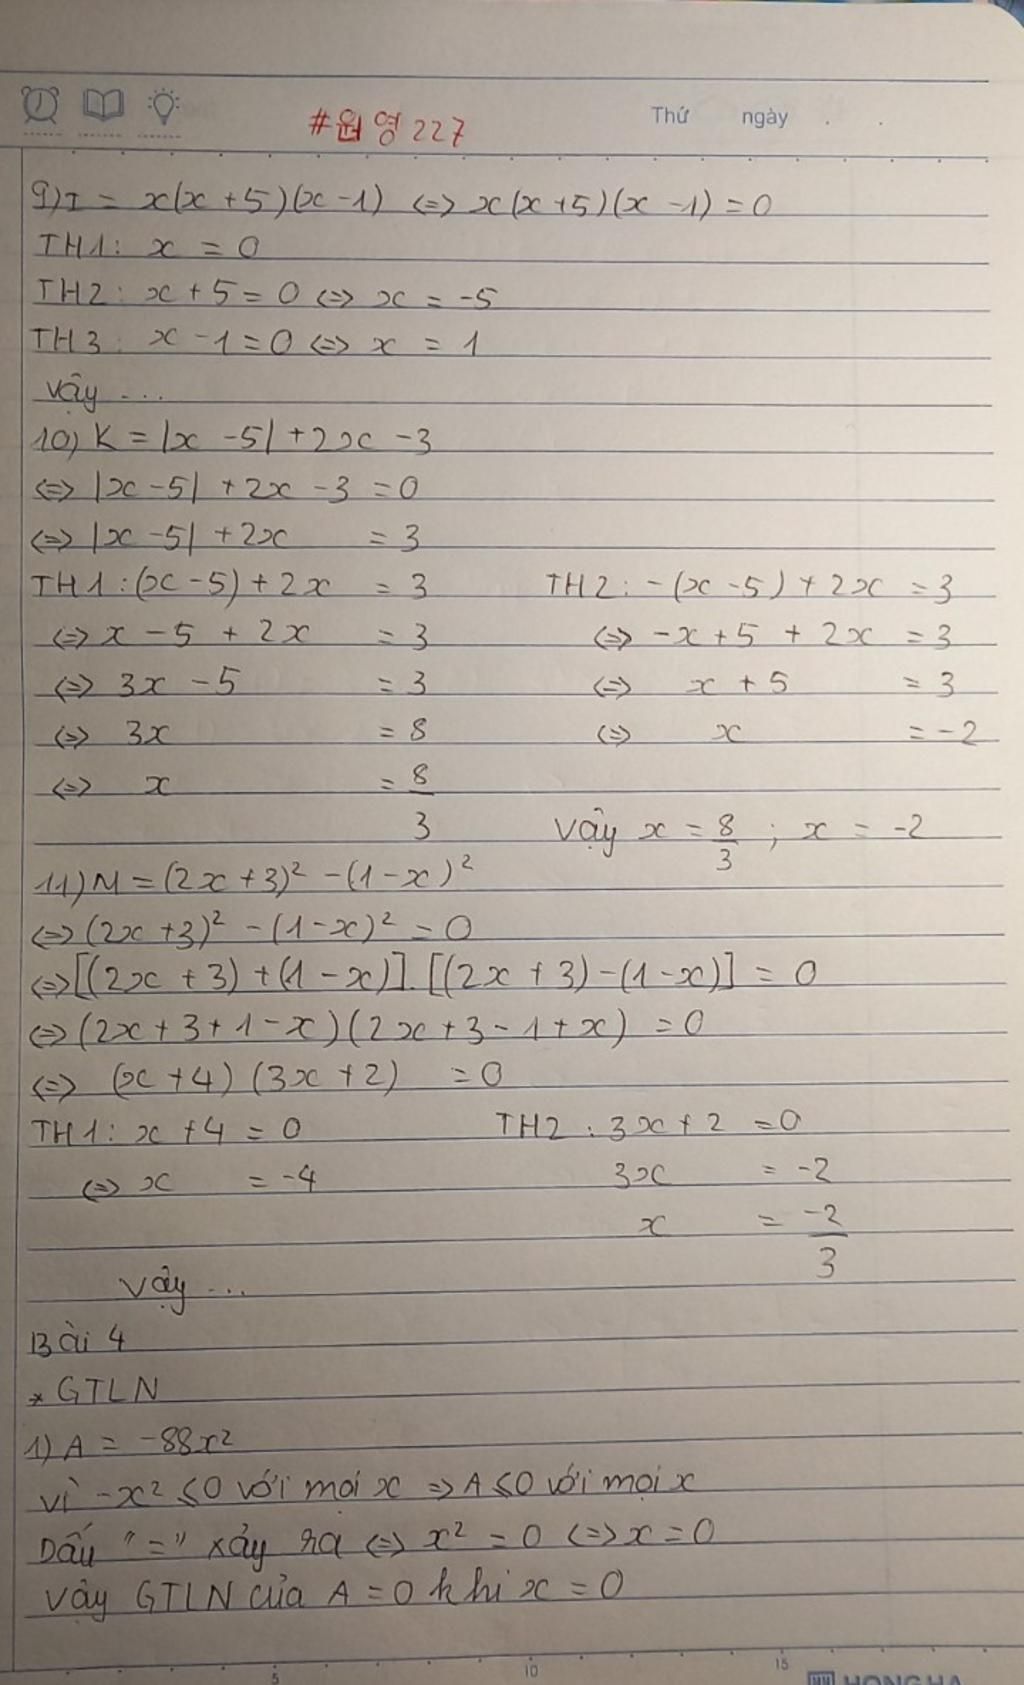 #원영 227
Thứ ngày
9) I = x(x + 5)(x - 1) <=> x(x + 5)(x - 1) = 0
TH1: x = 0
TH2: x + 5 = 0 <=> x = -5
TH3: x - 1 = 0 <=> x = 1
Vậy ...
10) K = |x - 5| + 2x - 3
<=> |x - 5| + 2x - 3 = 0
<=> |x - 5| + 2x = 3
TH1: (x - 5) + 2x = 3 TH2: -(x - 5) + 2x = 3
<=> x - 5 + 2x = 3 <=> -x + 5 + 2x = 3
<=> 3x - 5 = 3 <=> x + 5 = 3
<=> 3x = 8 <=> x = -2
<=> x = 8/3
Vậy x = 8/3 ; x = -2
11) M = (2x + 3)² - (1 - x)²
<=> (2x + 3)² - (1 - x)² = 0
<=> [(2x + 3) + (1 - x)].[(2x + 3) - (1 - x)] = 0
<=> (2x + 3 + 1 - x)(2x + 3 - 1 + x) = 0
<=> (x + 4)(3x + 2) = 0
TH1: x + 4 = 0 TH2: 3x + 2 = 0
<=> x = -4 3x = -2
x = -2/3
Vậy ...
Bài 4
* GTLN
1) A = -88x²
Vì -x² ≤ 0 với mọi x => A ≤ 0 với mọi x
Dấu "=" xảy ra <=> x² = 0 <=> x = 0
Vậy GTLN của A = 0 khi x = 0
5 10 15
HONG HA